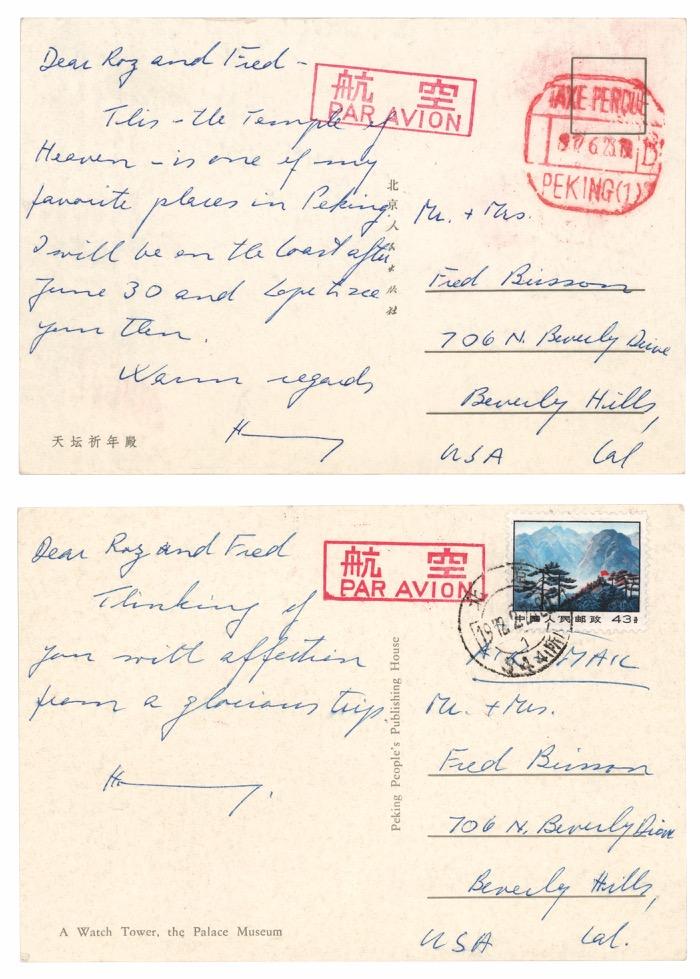 Dear Roz and Fred -
航 空
PAR AVION
TAXE PERCUE
PEKING (1)
This - the Temple of
Heaven - is one of my
favorite places in Peking.
I will be on the Coast after
June 30 and hope to see
you then.
Warm regards
H
天坛祈年殿
北京人
Mr. + Mrs.
Fred
706 N. Beverly Drive
Beverly Hills,
USA Cal
Dear Roz and Fred
航 空
PAR AVION
中国人民邮政 43分
Thinking of
you with affection
from a glorious trip.
H
Peking People's Publishing House
A Watch Tower, the Palace Museum
AIR MAIL
Mr. + Mrs.
Fred
706 N. Beverly Drive
Beverly Hills,
USA Cal.